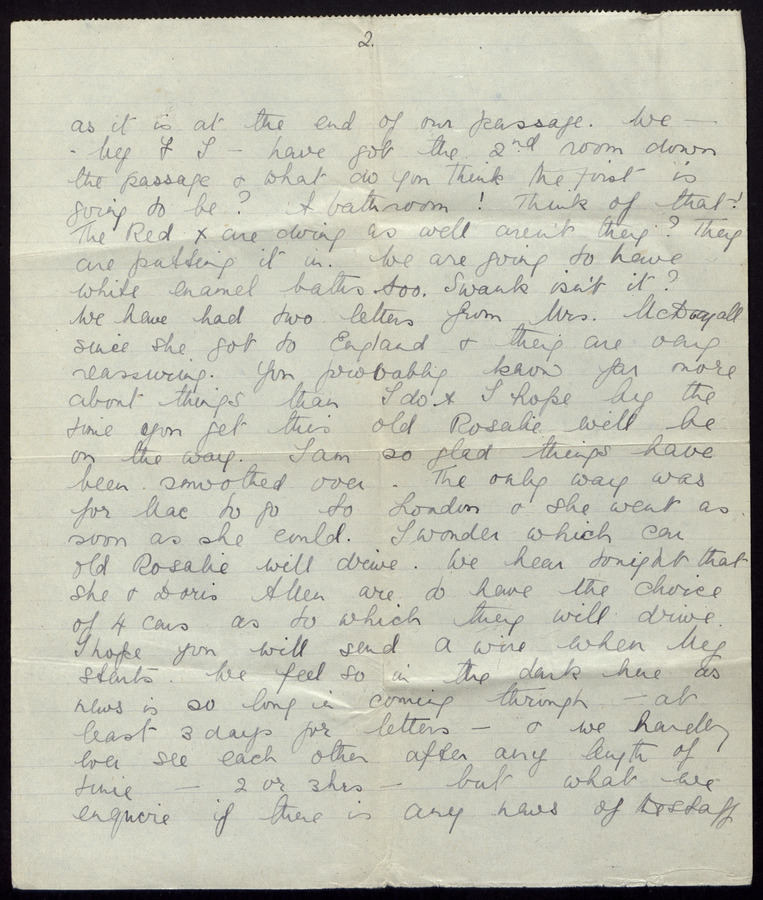 2.
as it is at the end of our passage. We —
- Meg & I - have got the 2nd room down
the passage & what do you think the first is
going to be? A bathroom! Think of that!
The Red X are doing us well aren't they? They
are putting it in. We are going to have
white enamel baths too. Swank isn't it?
We have had two letters from Mrs. McDougall
since she got to England & they are very
reassuring. You probably know far more
about things than I do & I hope by the
time you get this old Rosalie will be
on the way. I am so glad things have
been smoothed over. The only way was
for Mac to go to London & she went as
soon as she could. I wonder which car
old Rosalie will drive. We hear tonight that
she & Doris Allen are to have the choice
of 4 cars as to which they will drive.
I hope you will send a wire when Meg
starts. We feel so in the dark here as
news is so long in coming through - at
least 3 days for letters - & we hardly
ever see each other after any length of
time - 2 or 3hrs - but what we
enquire if there is any news of the staff